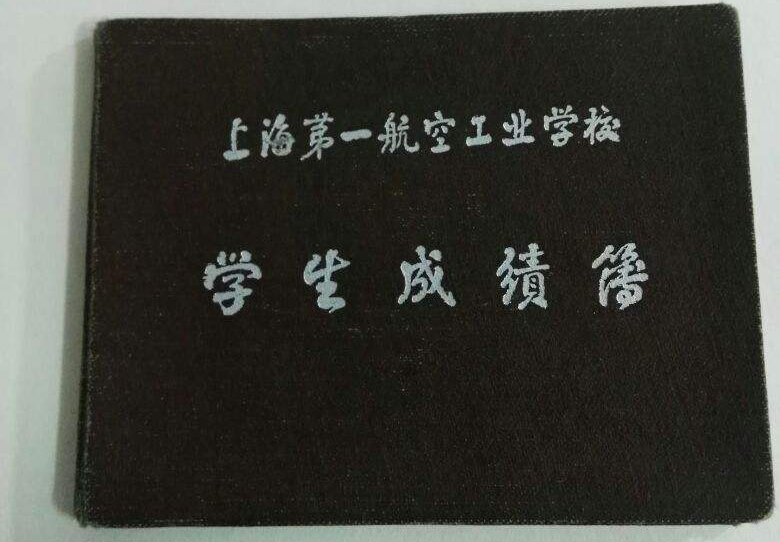 上海第一航空工业学校
学生成績簿